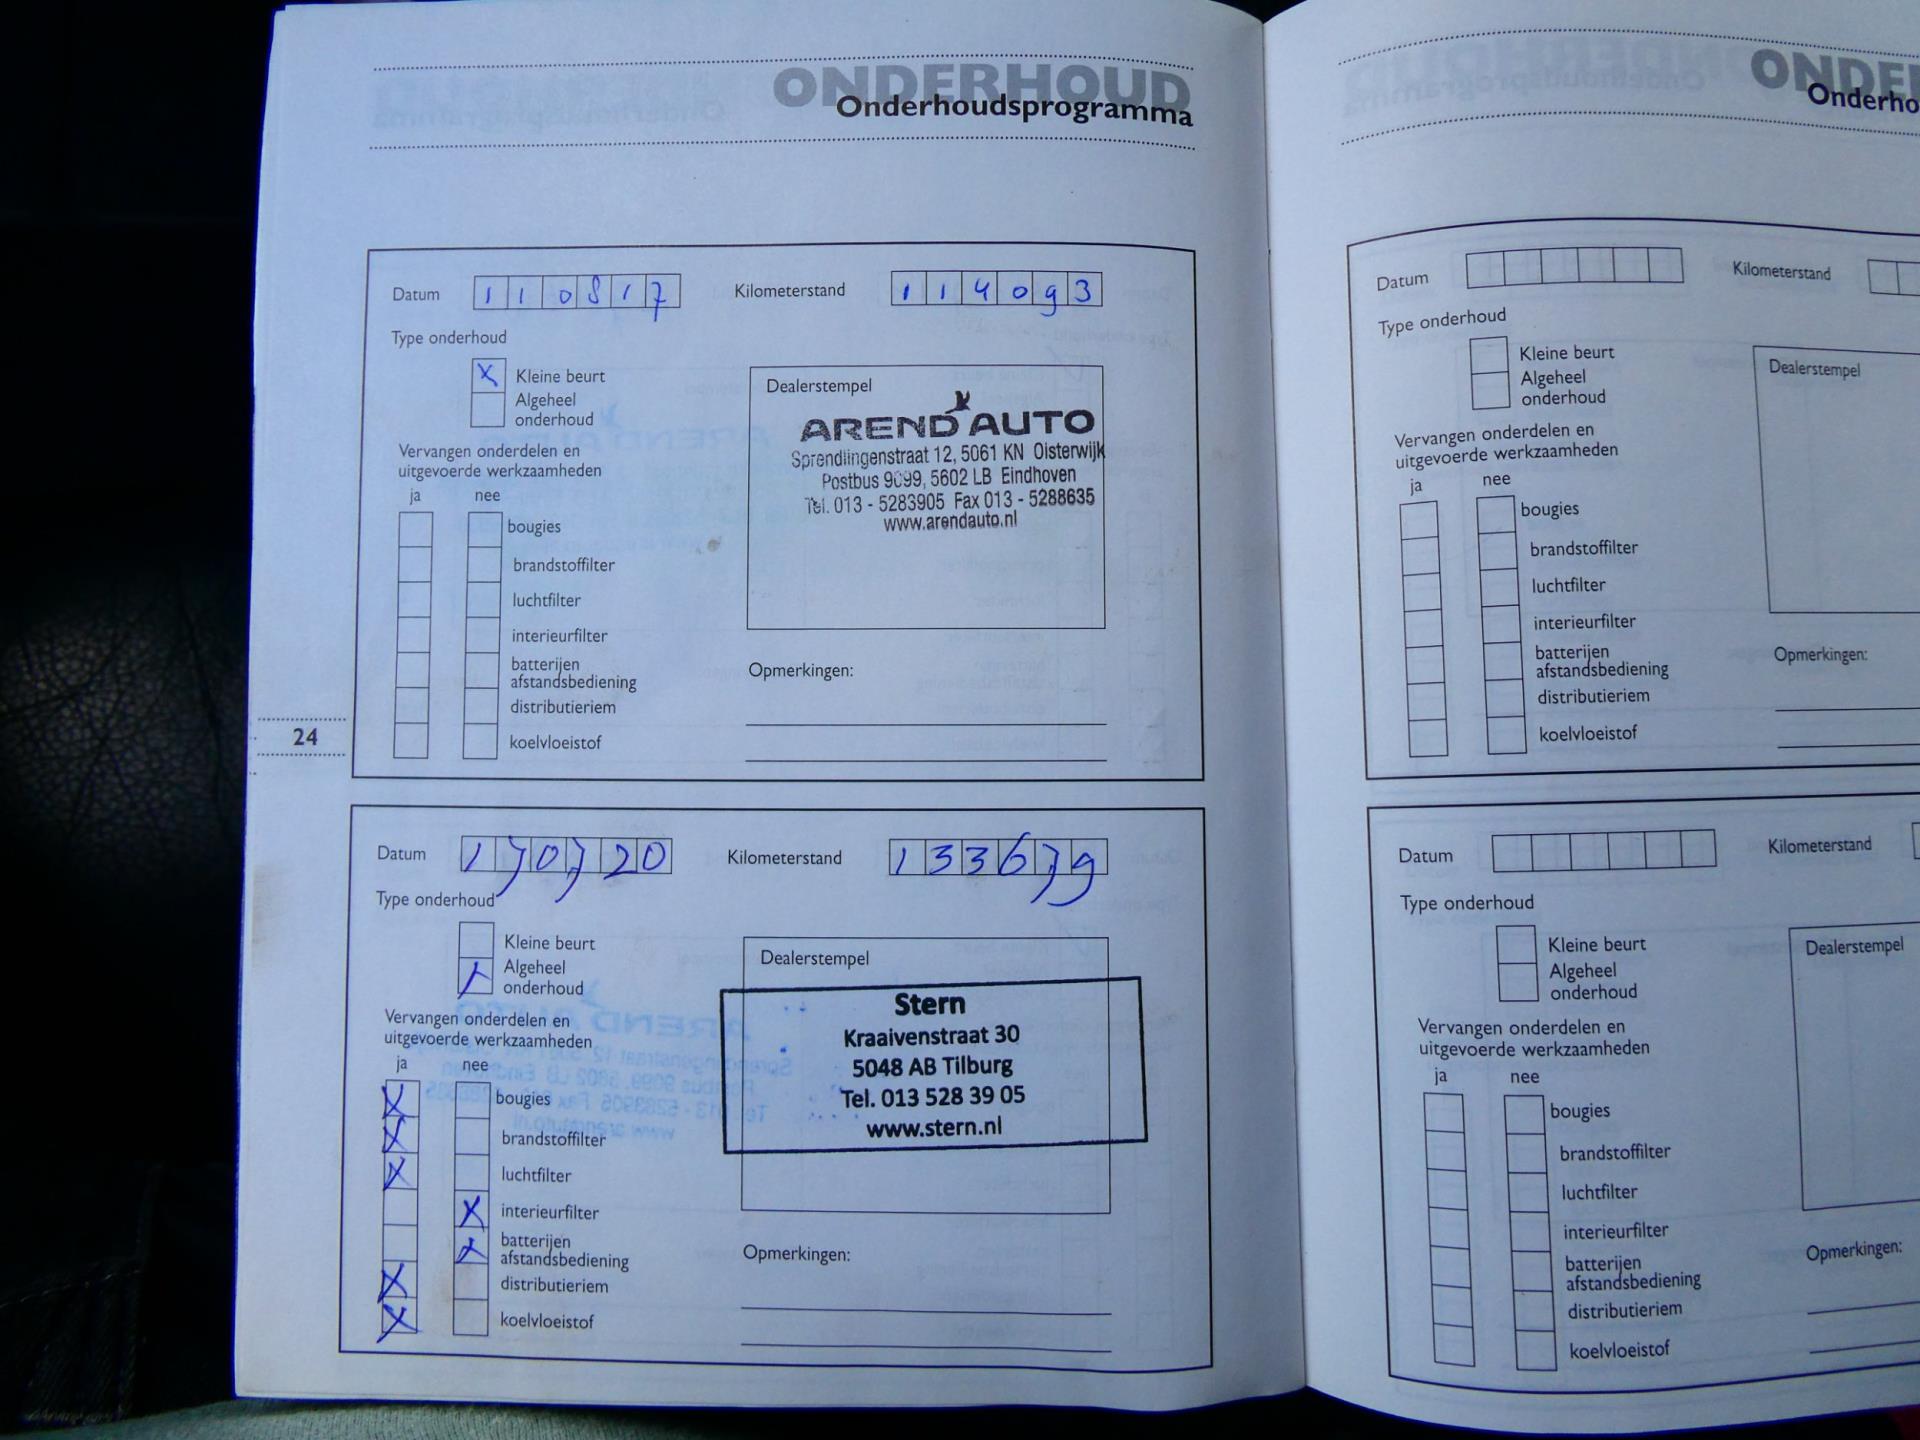 ONDERHOUD
Onderhoudsprogramma
Datum 110817 Kilometerstand 114093
Type onderhoud
X Kleine beurt
Algeheel
onderhoud
Vervangen onderdelen en
uitgevoerde werkzaamheden
ja nee
bougies
brandstoffilter
luchtfilter
interieurfilter
batterijen
afstandsbediening
distributieriem
koelvloeistof
Dealerstempel
AREND AUTO
Sprendlingenstraat 12, 5061 KN Oisterwijk
Postbus 9099, 5602 LB Eindhoven
Tel. 013 - 5283905 Fax 013 - 5288635
www.arendauto.nl
Opmerkingen:
24
Datum 170720 Kilometerstand 133679
Type onderhoud
Kleine beurt
X Algeheel
onderhoud
Vervangen onderdelen en
uitgevoerde werkzaamheden
ja nee
X bougies
X brandstoffilter
X luchtfilter
X interieurfilter
X batterijen
afstandsbediening
X distributieriem
X koelvloeistof
Dealerstempel
Stern
Kraaivenstraat 30
5048 AB Tilburg
Tel. 013 528 39 05
www.stern.nl
Opmerkingen:
ONDE
Onderho
Datum Kilometerstand
Type onderhoud
Kleine beurt
Algeheel
onderhoud
Vervangen onderdelen en
uitgevoerde werkzaamheden
ja nee
bougies
brandstoffilter
luchtfilter
interieurfilter
batterijen
afstandsbediening
distributieriem
koelvloeistof
Dealerstempel
Opmerkingen:
Datum Kilometerstand
Type onderhoud
Kleine beurt
Algeheel
onderhoud
Vervangen onderdelen en
uitgevoerde werkzaamheden
ja nee
bougies
brandstoffilter
luchtfilter
interieurfilter
batterijen
afstandsbediening
distributieriem
koelvloeistof
Dealerstempel
Opmerkingen: